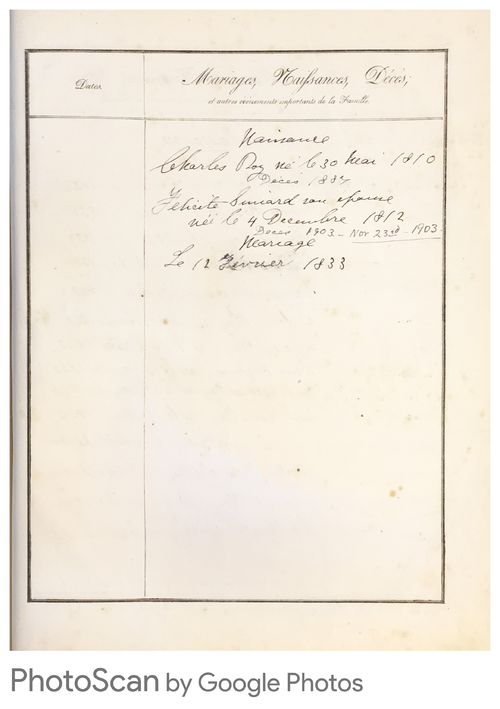 Dates.
Mariages, Naissances, Décès,
et autres évènements importants de la Famille.
Naissance
Charles Roy né le 30 Mai 1810
Décès
Félicité Simard son épouse
née le 4 Decembre 1812
Décès 1903 - Nov 23rd - 1903
Mariage
Le 12 Février 1833
PhotoScan by Google Photos